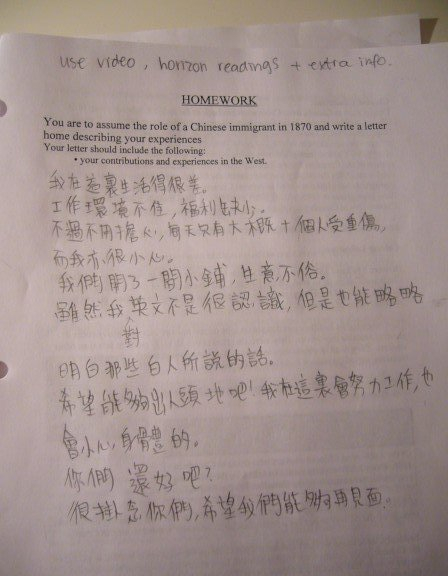 use video, horizon readings + extra info.
HOMEWORK
You are to assume the role of a Chinese immigrant in 1870 and write a letter
home describing your experiences
Your letter should include the following:
• your contributions and experiences in the West.
我在這裏生活得很差。
工作環境不佳，福利缺少。
不過不用擔心，每天只有大概十個人受重傷，
而我亦很小心。
我們開了一間小鋪，生意不俗。
雖然我對英文不是很認識，但是也能略略
明白那些白人所說的話。
希望能夠出人頭地吧！我在這裏會努力工作，也
會小心身體的。
你們還好吧？
很掛念你們，希望我們能夠再見面。